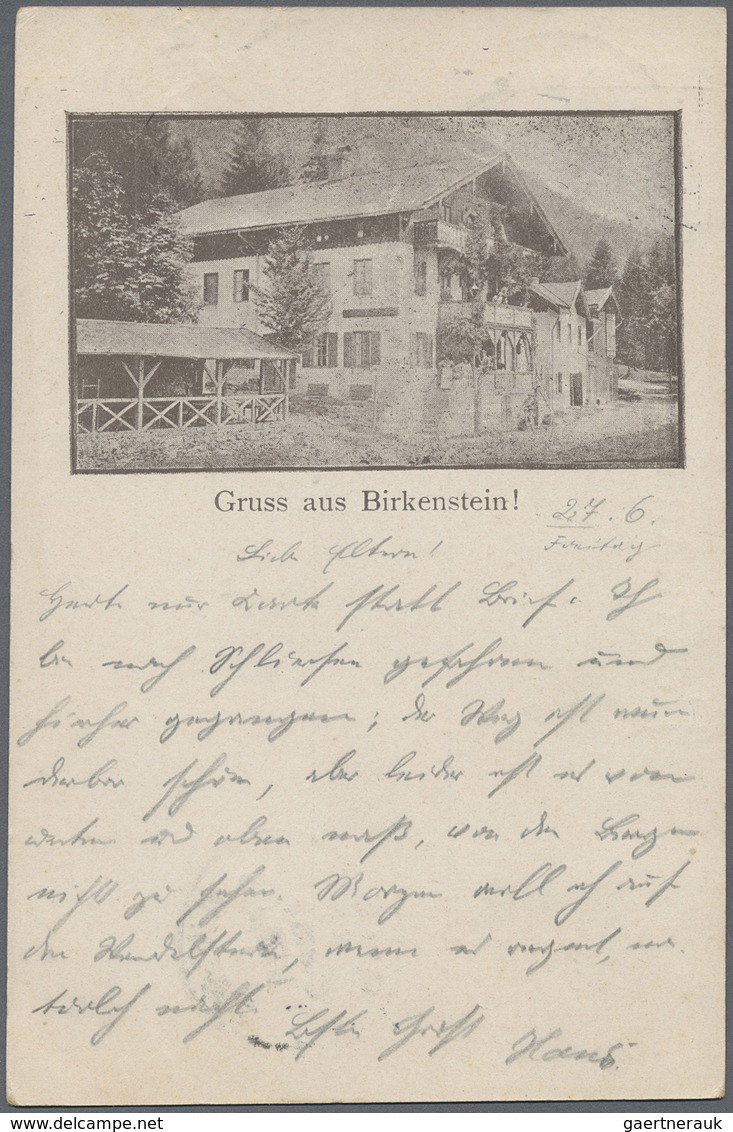 Gruss aus Birkenstein!
27.6.
Freitag
Liebe Eltern!
Heute nur Karte statt Brief. Ich
bin nach Schliersee gefahren und
hierher gegangen; der Weg ist wun
derbar schön, aber leider ist es von
unten und oben naß, von den Bergen
nichts zu sehen. Morgen will ich auf
den Wendelstein, wenn es regnet, na
türlich nicht.
Besten Gruß
Hans.
gaertnerauk